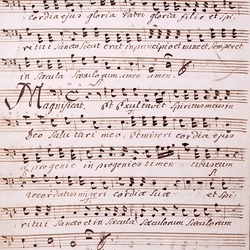 cordia ejus gloria Patri gloria filio et spi
ritui sancto sicut erat in principio et nunc et semper et
in sæcula sæculorum amen amen.
Magnificat. et exultavit spiritus meus in
Deo salutari meo, et miseri cordia ejus
a progenie in progenies timen tibus eum
recordatus miseri cordiæ suæ et spi
ritui sancto et in sæcula sæculorum sæculorum